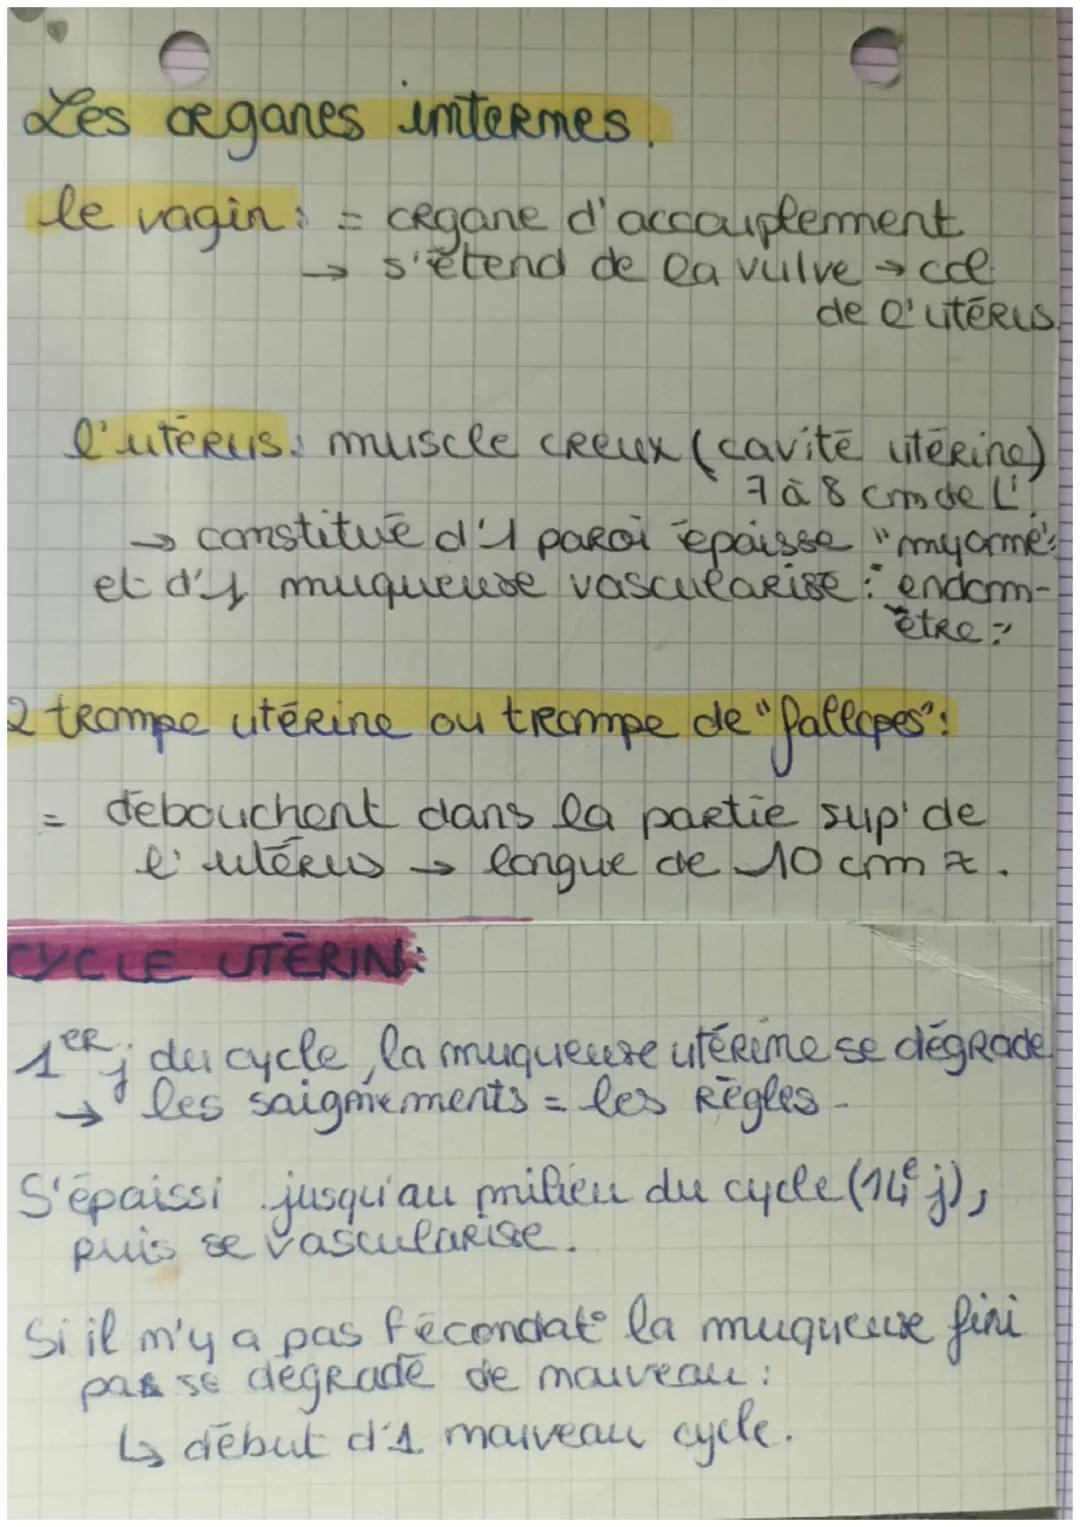 Les organes internes.
le vagin : = organe d'accouplement
→ s'étend de la vulve → col
de l'utérus.
l'utérus : muscle creux (cavité utérine)
7 à 8 cm de L'.
→ constitué d'1 paroi épaisse "myomè"
et d'1 muqueuse vascularisé : endom-
ètre :"
2 trompe utérine ou trompe de "fallopes" :
= débouchent dans la partie sup' de
l'utérus → longue de 10 cm ±.
CYCLE UTÉRIN :
1er j du cycle, la muqueuse utérine se dégrade
→ les saignements = les Règles.
S'épaissi jusqu'au milieu du cycle (14e j),
puis se vascularise.
Si il n'y a pas fécondat° la muqueuse fini
par se dégradé de nouveau :
↳ début d'1 nouveau cycle.